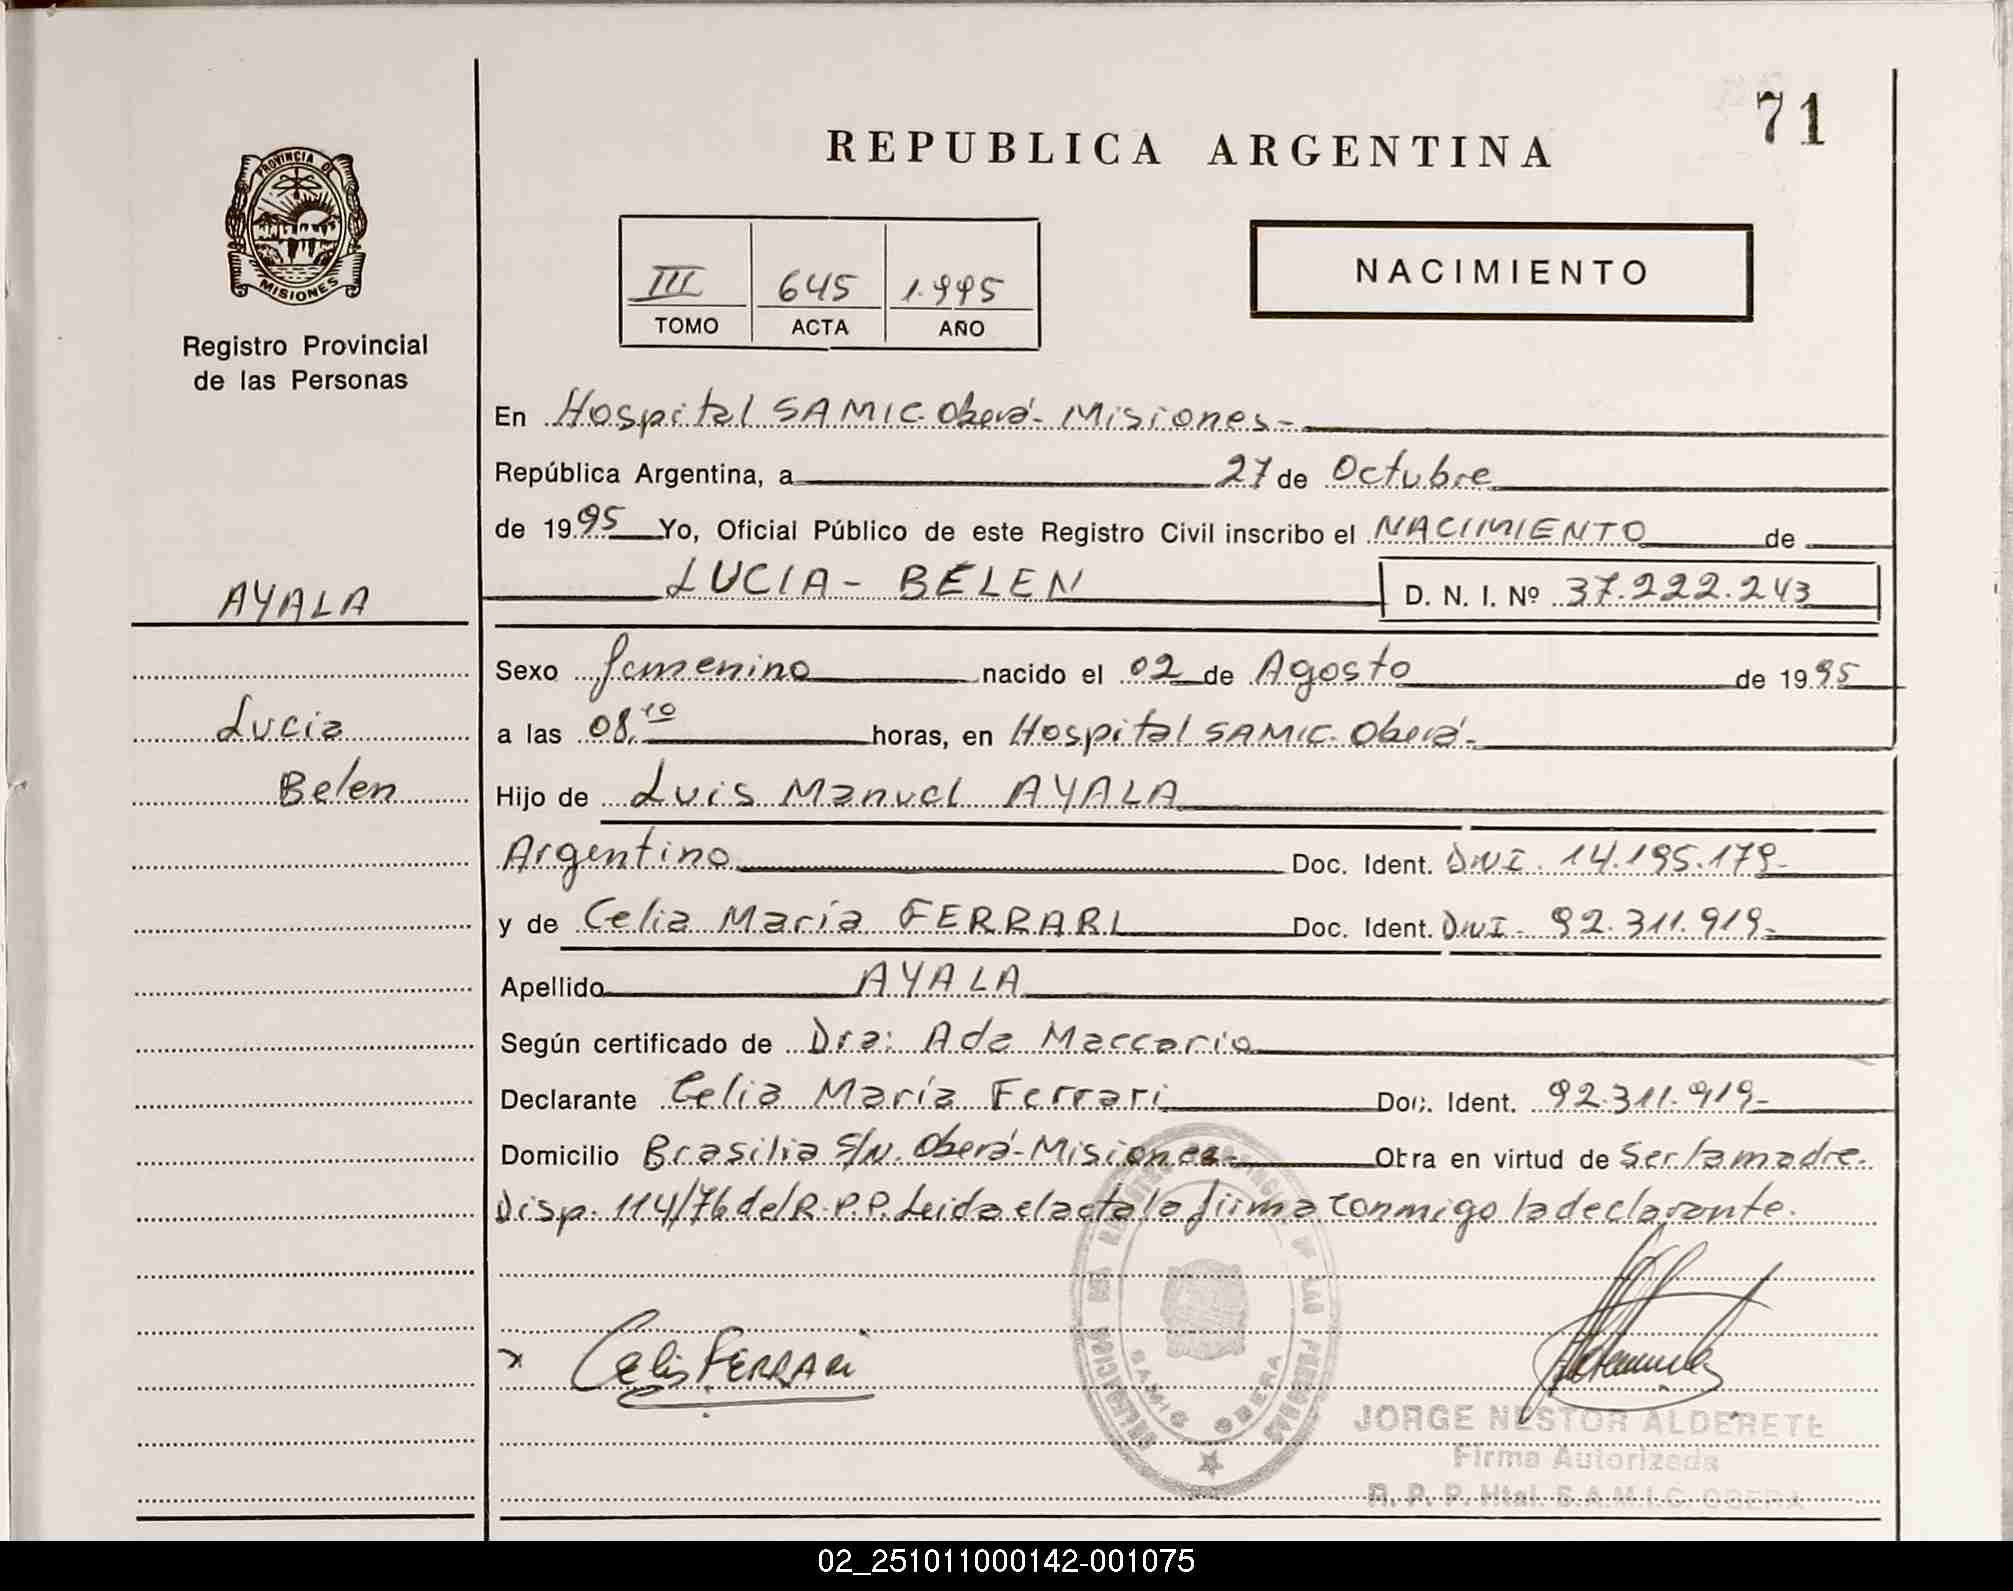 71
REPUBLICA ARGENTINA
PROVINCIA DE
MISIONES
Registro Provincial
de las Personas
III 645 1.995
TOMO ACTA AÑO
NACIMIENTO
En Hospital SAMIC. Oberá- Misiones-
República Argentina, a 27 de Octubre
de 1995 Yo, Oficial Público de este Registro Civil inscribo el NACIMIENTO de
LUCIA- BELEN D. N. I. Nº 37.222.243
AYALA
Lucia
Belen
Sexo femenino nacido el 02 de Agosto de 1995
a las 08.10 horas, en Hospital SAMIC. Oberá-
Hijo de Luis Manuel AYALA
Argentino Doc. Ident. DNI. 14.195.179-
y de Celia María FERRARI Doc. Ident. DNI- 92.311.919-
Apellido AYALA
Según certificado de Dra: Ada Maccario
Declarante Celia María Ferrari Doc. Ident. 92.311.919-
Domicilio Brasilia S/N. Oberá-Misiones- Obra en virtud de Ser la madre.
Disp. 114/76 del R.P.P. Leida el acta la firma conmigo la declarante.
x Celia FERRARI
DELEGACION DEL REGISTRO PROVINCIAL DE LAS PERSONAS
SAMIC OBERA
JORGE NESTOR ALDERETE
Firma Autorizada
R. P. P. Htal. S.A.M.I.C. OBERA
02_251011000142-001075